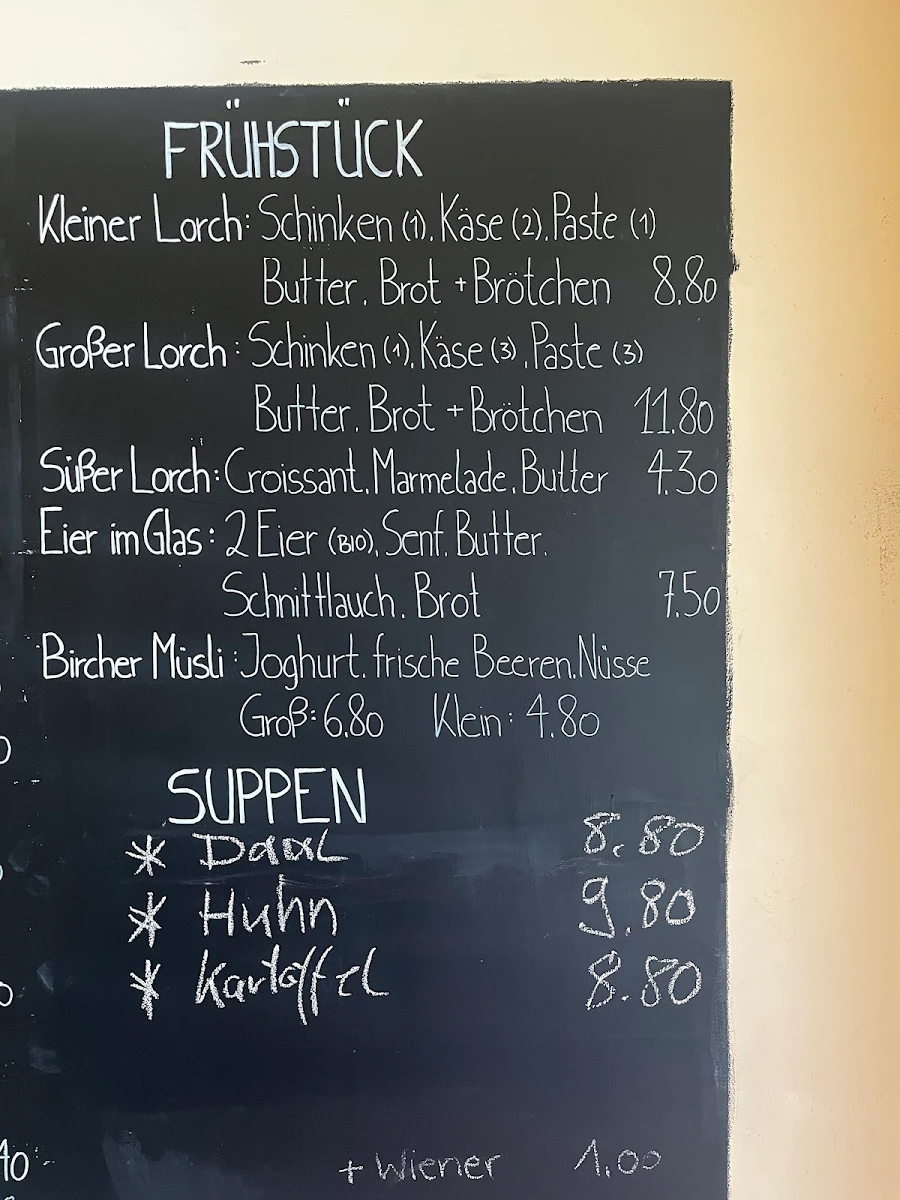 FRÜHSTÜCK
Kleiner Lorch: Schinken (1), Käse (2), Paste (1)
Butter, Brot + Brötchen 8.80
Großer Lorch: Schinken (1), Käse (3), Paste (3)
Butter, Brot + Brötchen 11.80
Süßer Lorch: Croissant, Marmelade, Butter 4.30
Eier im Glas: 2 Eier (BIO), Senf, Butter,
Schnittlauch, Brot 7.50
Bircher Müsli: Joghurt, frische Beeren, Nüsse
Groß: 6.80 Klein: 4.80
SUPPEN
* Daal 8.80
* Huhn 9.80
* Kartoffel 8.80
+ Wiener 1.00